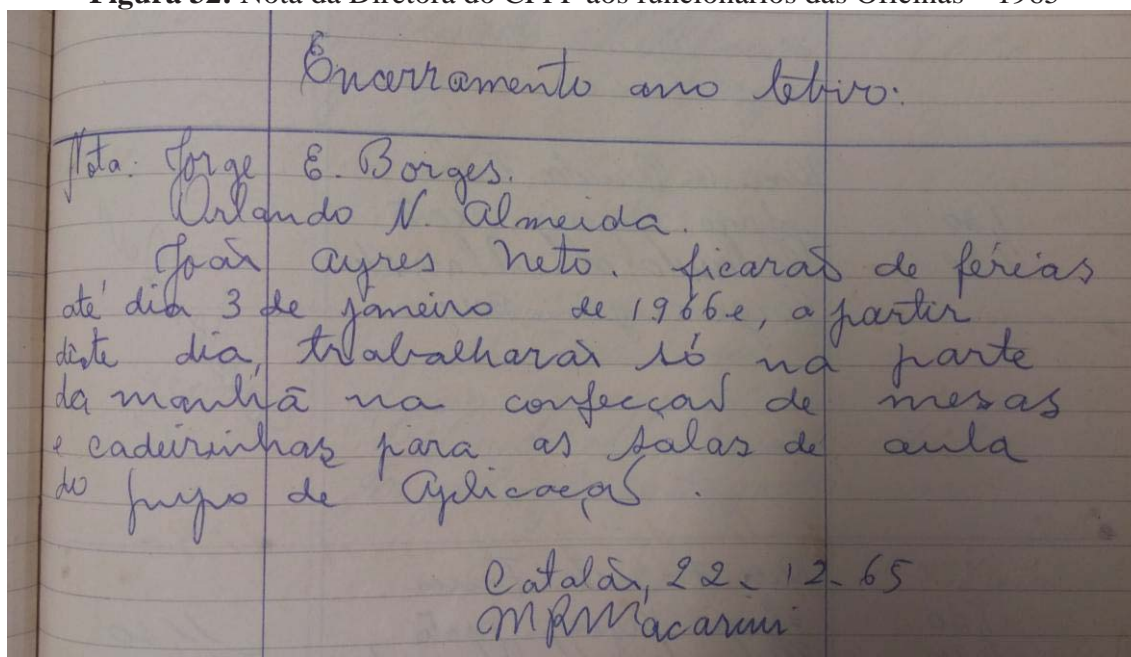 Figura 32: Nota da Diretora do CFPP aos funcionários das Oficinas – 1965
Encerramento ano letivo:
Nota: Jorge E. Borges.
Orlando N. Almeida.
João Ayres Neto. ficarão de férias
até dia 3 de janeiro de 1966 e, a partir
dêste dia, trabalharão só na parte
da manhã na confecção de mesas
e cadeirinhas para as salas de aula
do de Aplicação.
Catalão, 22-12-65
MRMacarini